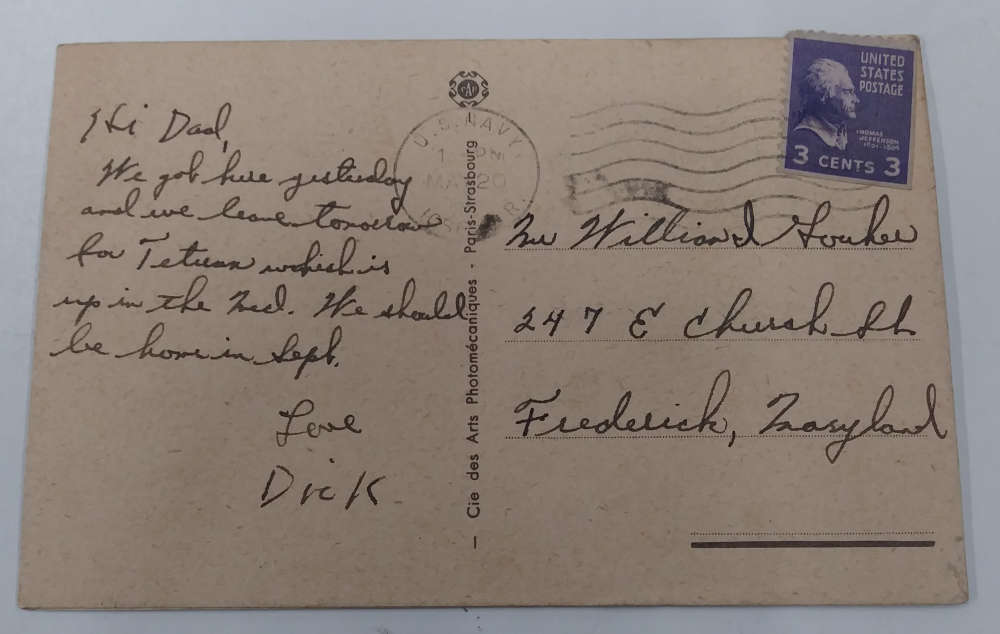 Hi Dad,
We got here yesterday
and we leave tomorrow
for Tetuan which is
up in the Med. We should
be home in Sept.
Love
Dick
— Cie des Arts Photomécaniques - Paris-Strasbourg
CAP
U.S. NAVY
MA 20
UNITED
STATES
POSTAGE
THOMAS
JEFFERSON
1801-1809
3 CENTS 3
Mr William J
247 E Church St
Frederick, Maryland